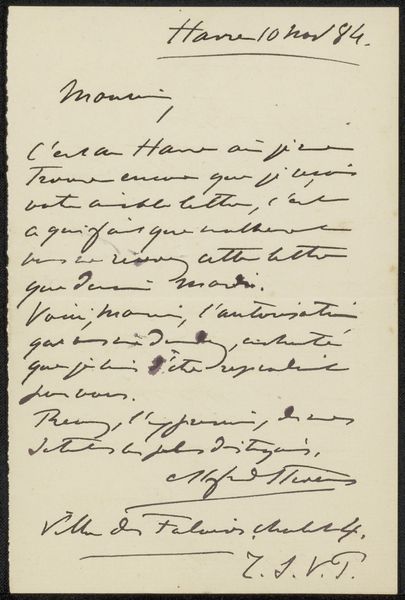 Havre 10 Nov 84.
Monsieur,
C'est au Havre où je me
trouve encore que je reçois
votre aimable lettre, c'est
ce qui fait que malheureusement
vous ne recevrez cette lettre
que demain Mardi.
Voici, Monsieur, l'autorisation
que vous me demandez, enchanté
que je suis d'être reproduit
par vous.
Recevez, l'expression, de mes
sentiments les plus distingués.
Alfred Stevens
Villa des Falaises, chalet 4.
T. S. V. P.